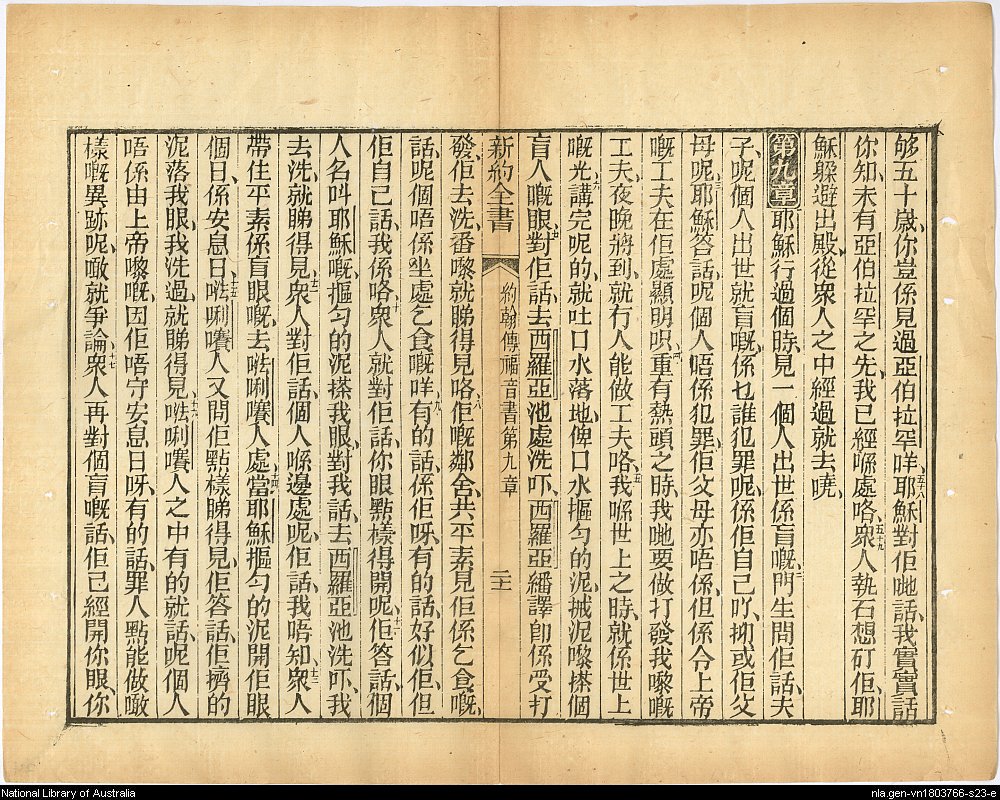 够五十歲、你豈係見過亞伯拉罕咩、五十八耶穌對佢哋話、我實實話
你知、未有亞伯拉罕之先、我已經喺處咯、五十九衆人執石想矴佢、耶
穌躱避出殿、從衆人之中經過就去嘵、
第九章 耶穌行過個時、見一個人出世係盲嘅、二門生問佢話、夫
子、呢個人出世就盲嘅、係乜誰犯罪呢、係佢自己吖、抑或佢父
母呢、三耶穌答話、呢個人唔係犯罪、佢父母亦唔係、但係令上帝
嘅工夫在佢處顯明呮、四重有熱頭之時、我哋要做打發我嚟嘅
工夫、夜晚將到、就冇人能做工夫咯、五我喺世上之時、就係世上
嘅光、六講完呢的、就吐口水落地、俾口水摳勻的泥、搣泥嚟搽個
盲人嘅眼、七對佢話、去西羅亞池處洗吓、西羅亞繙譯卽係受打
新約全書 約翰傳福音書第九章 二十二
發、佢去洗番嚟就睇得見咯、八佢嘅鄰舍、共平素見佢係乞食嘅、
話、呢個唔係坐處乞食嘅咩、九有的話、係佢呀、有的話、好似佢、但
佢自己話、我係咯、十衆人就對佢話、你眼點樣得開呢、十一佢答話、個
人名叫耶穌嘅、摳勻的泥搽我眼、對我話、去西羅亞池洗吓、我
去洗、就睇得見、十二衆人對佢話、個人喺邊處呢、佢話、我唔知、十三衆人
帶住平素係盲眼嘅、去𠵽唎嚽人處、十四當耶穌摳勻的泥開佢眼
個日、係安息日、十五𠵽唎嚽人又問佢點樣睇得見、佢答話、佢擠的
泥落我眼、我洗過、就睇得見、十六𠵽唎嚽人之中有的就話、呢個人
唔係由上帝嚟嘅、因佢唔守安息日呀、有的話、罪人點能做噉
樣嘅異跡呢、噉就爭論、十七衆人再對個盲嘅話、佢已經開你眼、你